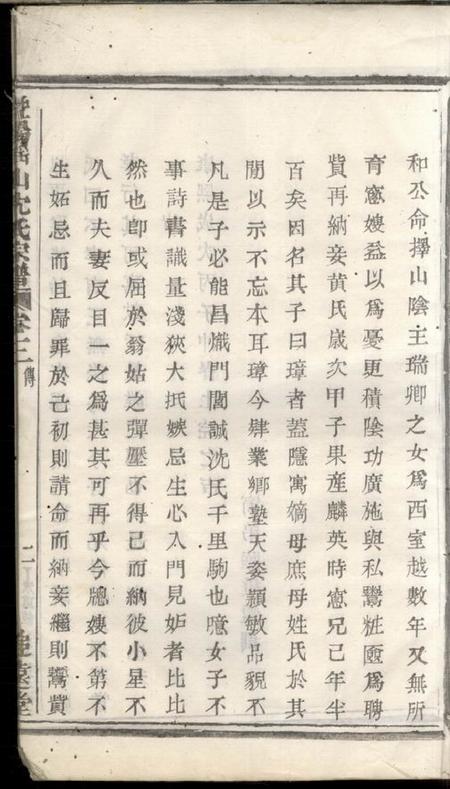 和公命擇山陰王瑞卿之女爲西室越數年又無所
育窓嫂益以爲憂更積陰功廣施與私鬻粧匳爲聘
貲再納妾黄氏歲次甲子果産麟英時窓兄已年半
百矣因名其子曰璋者蓋隱寓嫡母庶母姓氏於其
間以示不忘本耳璋今肄業鄉塾天姿穎敏品貌不
凡是子必能昌熾門閭誠沈氏千里駒也噫女子不
事詩書識量淺狹大抵嫉忌生心入門見妬者比比
然也卽或屈於翁姑之彈壓不得已而納彼小星不
久而夫妻反目一之爲甚其可再乎今窓嫂不第不
生妬忌而且歸罪於己初則請命而納妾繼則鬻貲
山沈氏宗譜
卷三
傳
二